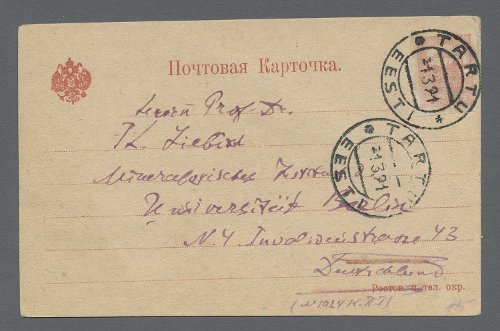 Почтовая Карточка.
TARTU EESTI
1.3.21
TARTU EESTI
1.3.21
Herrn Prof. Dr.
Th. Liebisch
Mineralogisches
Universität Berlin
N 4 Invalidenstrasse 43
Deutschland
Ростов. п. тел. окр.